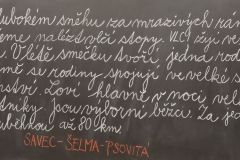 lubokém sněhu za mrazivých rán
eme nalézt vlčí stopy. Vlci žijí ve
. V létě smečku tvoří jedna rod
mě se rodiny spojují ve velké s
nství. Loví hlavně v noci, vel
tníky jsou výborní běžci. Za jed
uběhnou až 80 km.
SAVEC - ŠELMA - PSOVITÁ